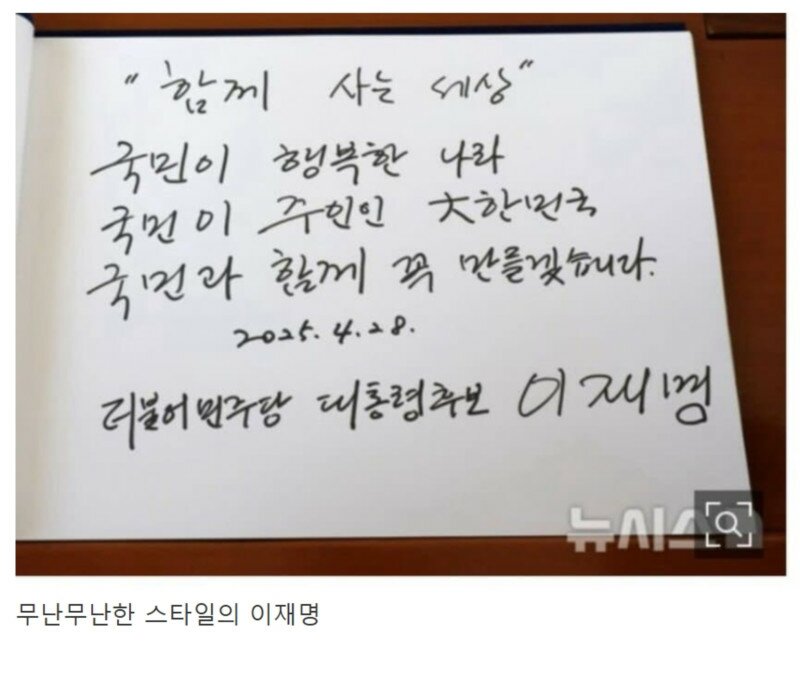 "함께 사는 세상"
국민이 행복한 나라
국민이 주인인 大한민국
국민과 함께 꼭 만들겠습니다.
2025.4.28.
더불어민주당 대통령후보 이재명
뉴시스
무난무난한 스타일의 이재명